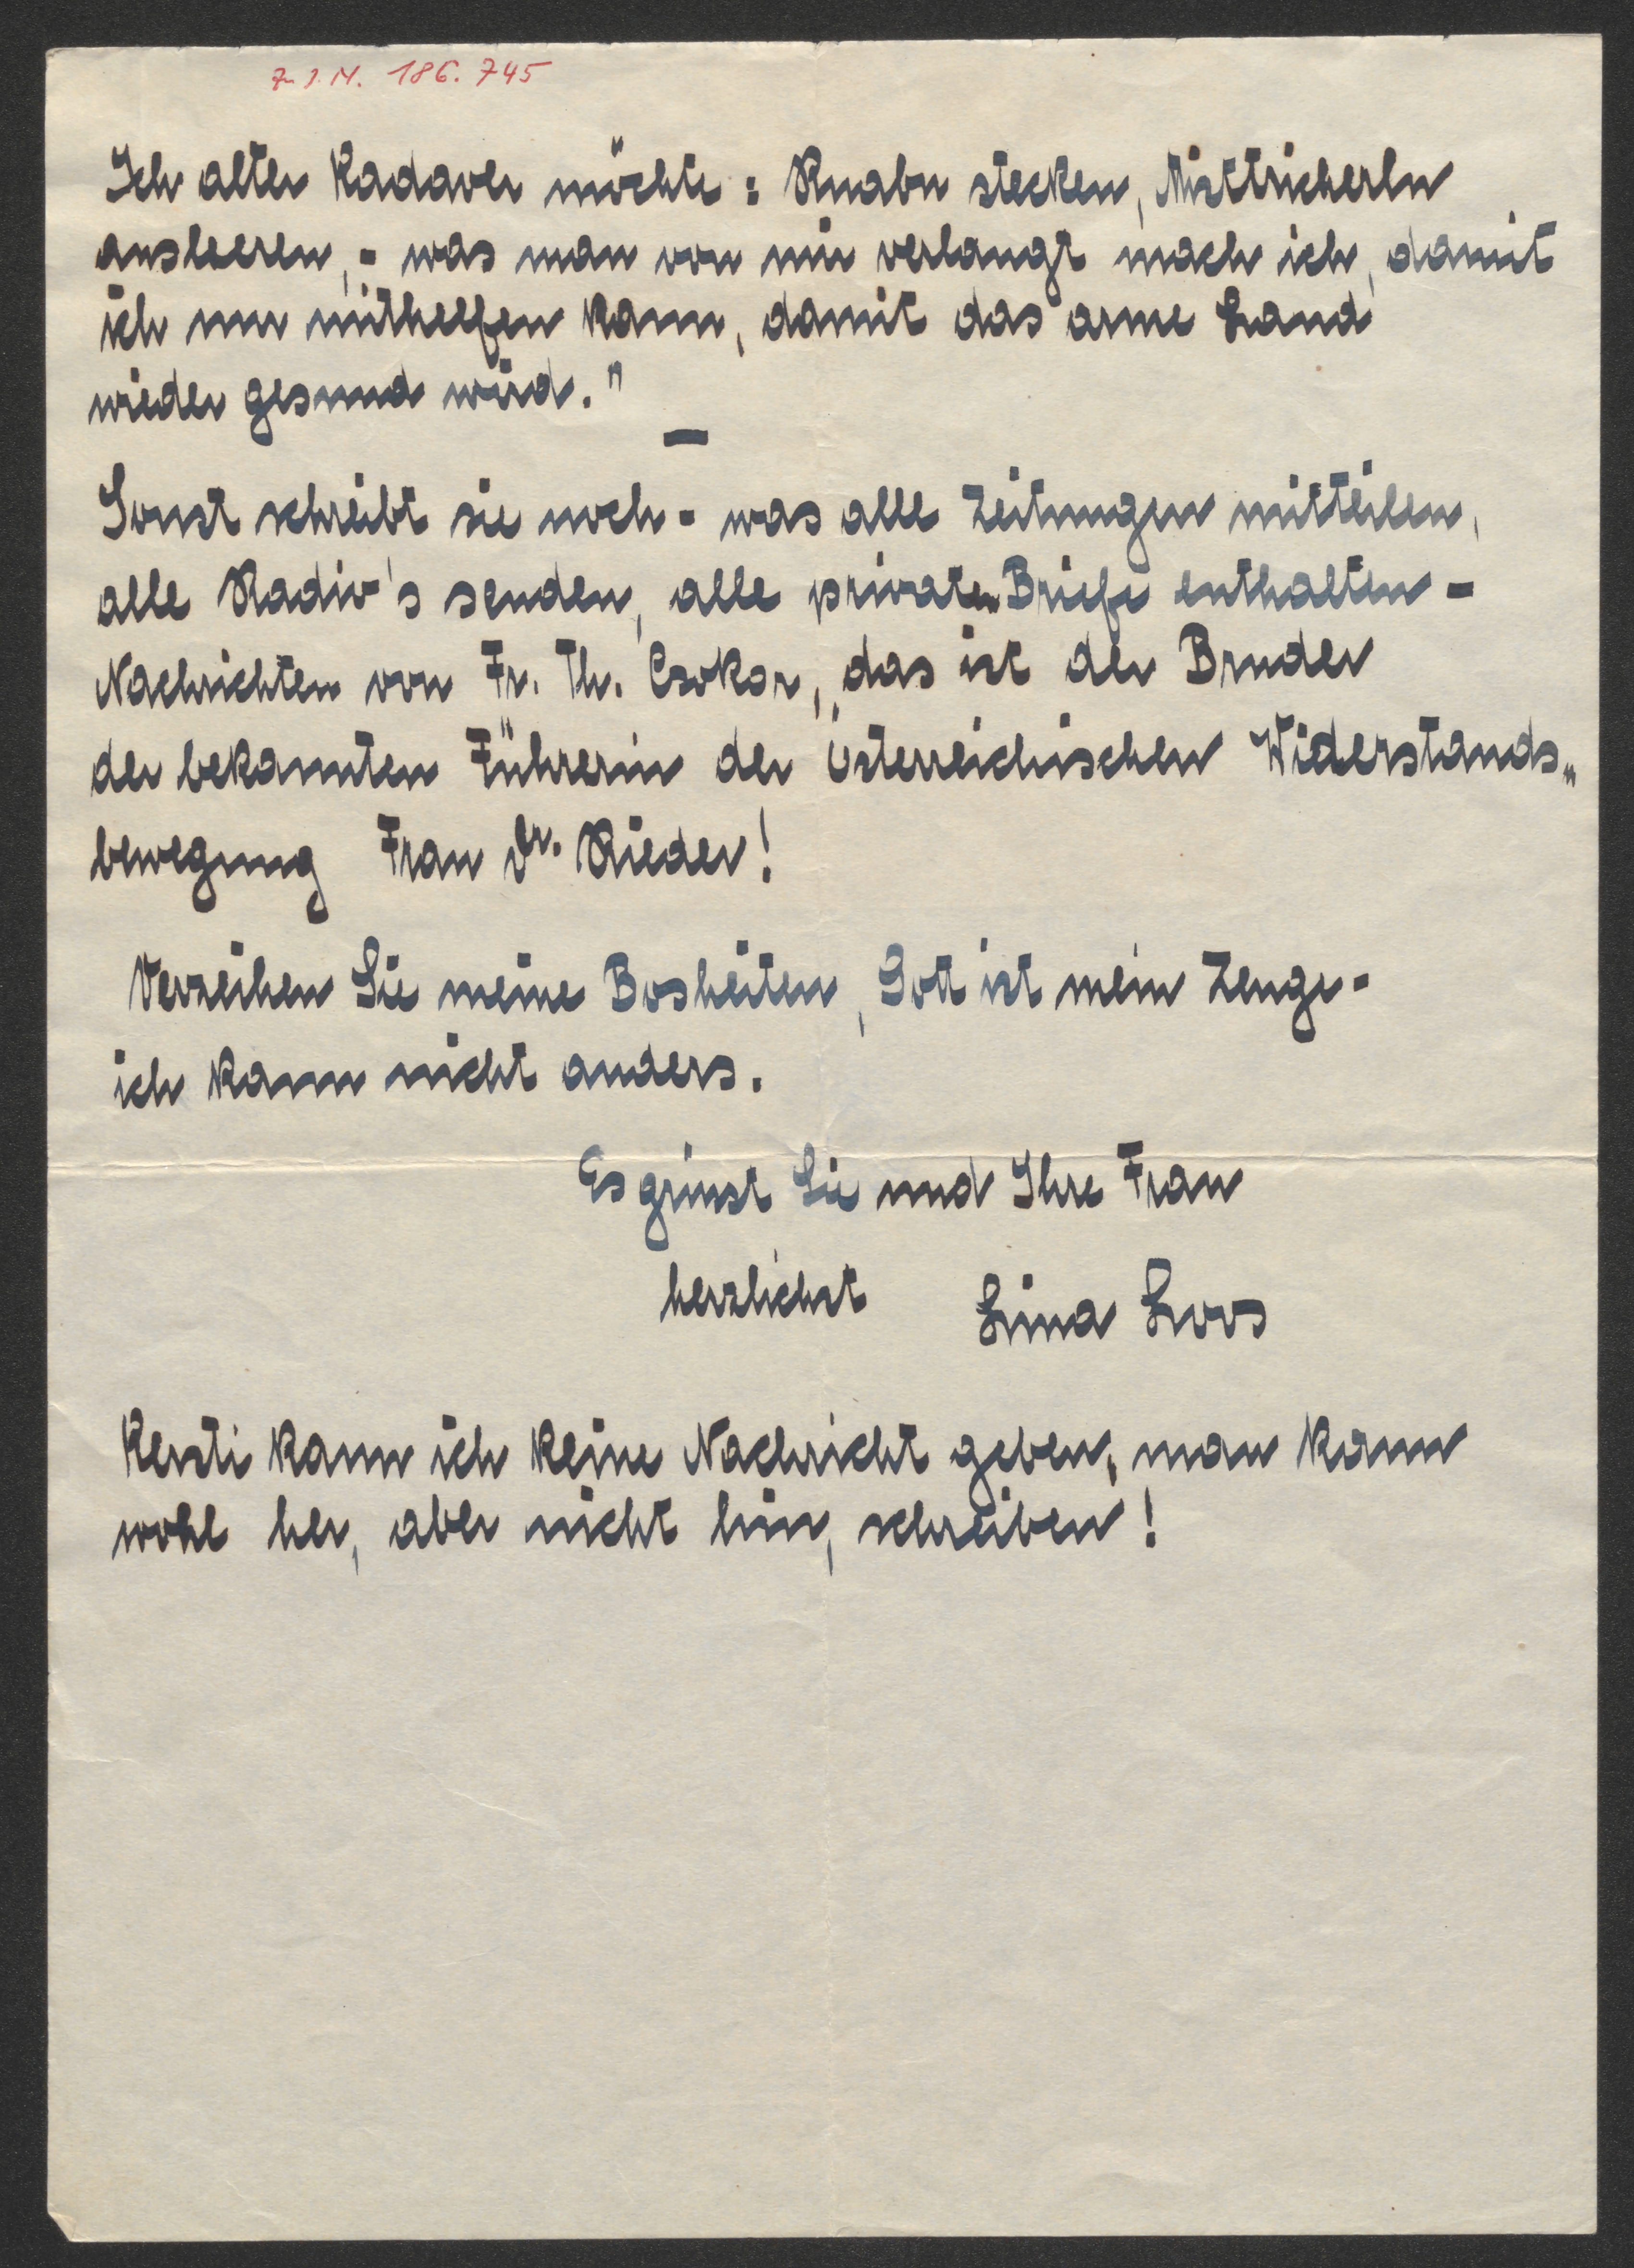 Zu J.N. 186.745
Ich alter Kadaver möchte: Ruabn stecken, Misttricherln
ausleeren, - was man von mir verlangt mach ich, damit
ich nur mithelfen kann, damit das arme Land
wieder gesund wird."
—
Sonst schreibt sie noch - was alle Zeitungen mitteilen,
alle Radio's senden, alle privaten Briefe enthalten -
Nachrichten von Fr. Th. Csokor, das ist der Bruder
der bekannten Führerin der österreichischen Widerstands„
bewegung Frau Dr. Rieder!
Verzeihen Sie meine Bosheiten, Gott ist mein Zeuge -
ich kann nicht anders.
Es grüsst Sie und Ihre Frau
herzlichst Lina Loos
Kersti kann ich keine Nachricht geben, man kann
wohl her, aber nicht hin, schreiben!